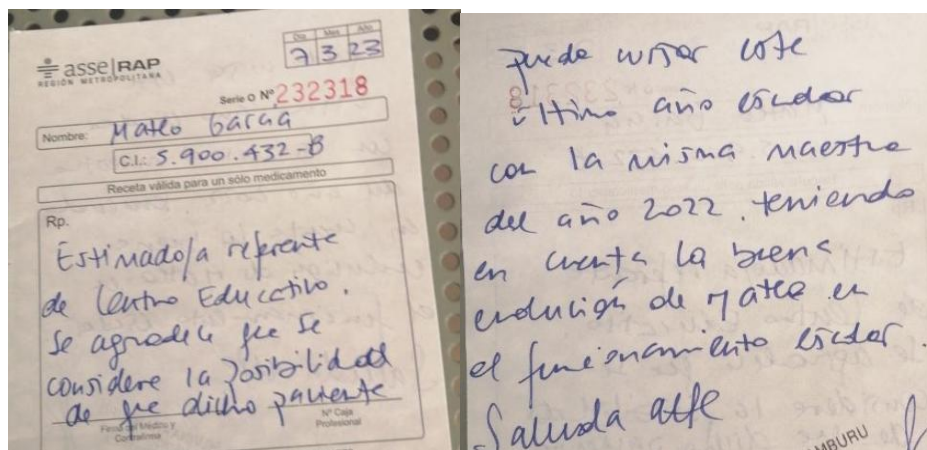 Día Mes Año
7 3 23
asse RAP
REGIÓN METROPOLITANA
Serie O Nº 232318
Nombre: Mateo García
C.I.: 5.900.432-8
Receta válida para un sólo medicamento
Rp.
Estimado/a referente
de Centro Educativo.
Se agradece que se
considere la posibilidad
de que dicho paciente
Firma del Médico y
Contrafirma
Nº Caja
Profesional
pueda cursar este
último año escolar
con la misma maestra
del año 2022, teniendo
en cuenta la buena
evolución de Mateo en
el funcionamiento escolar.
Saluda atte